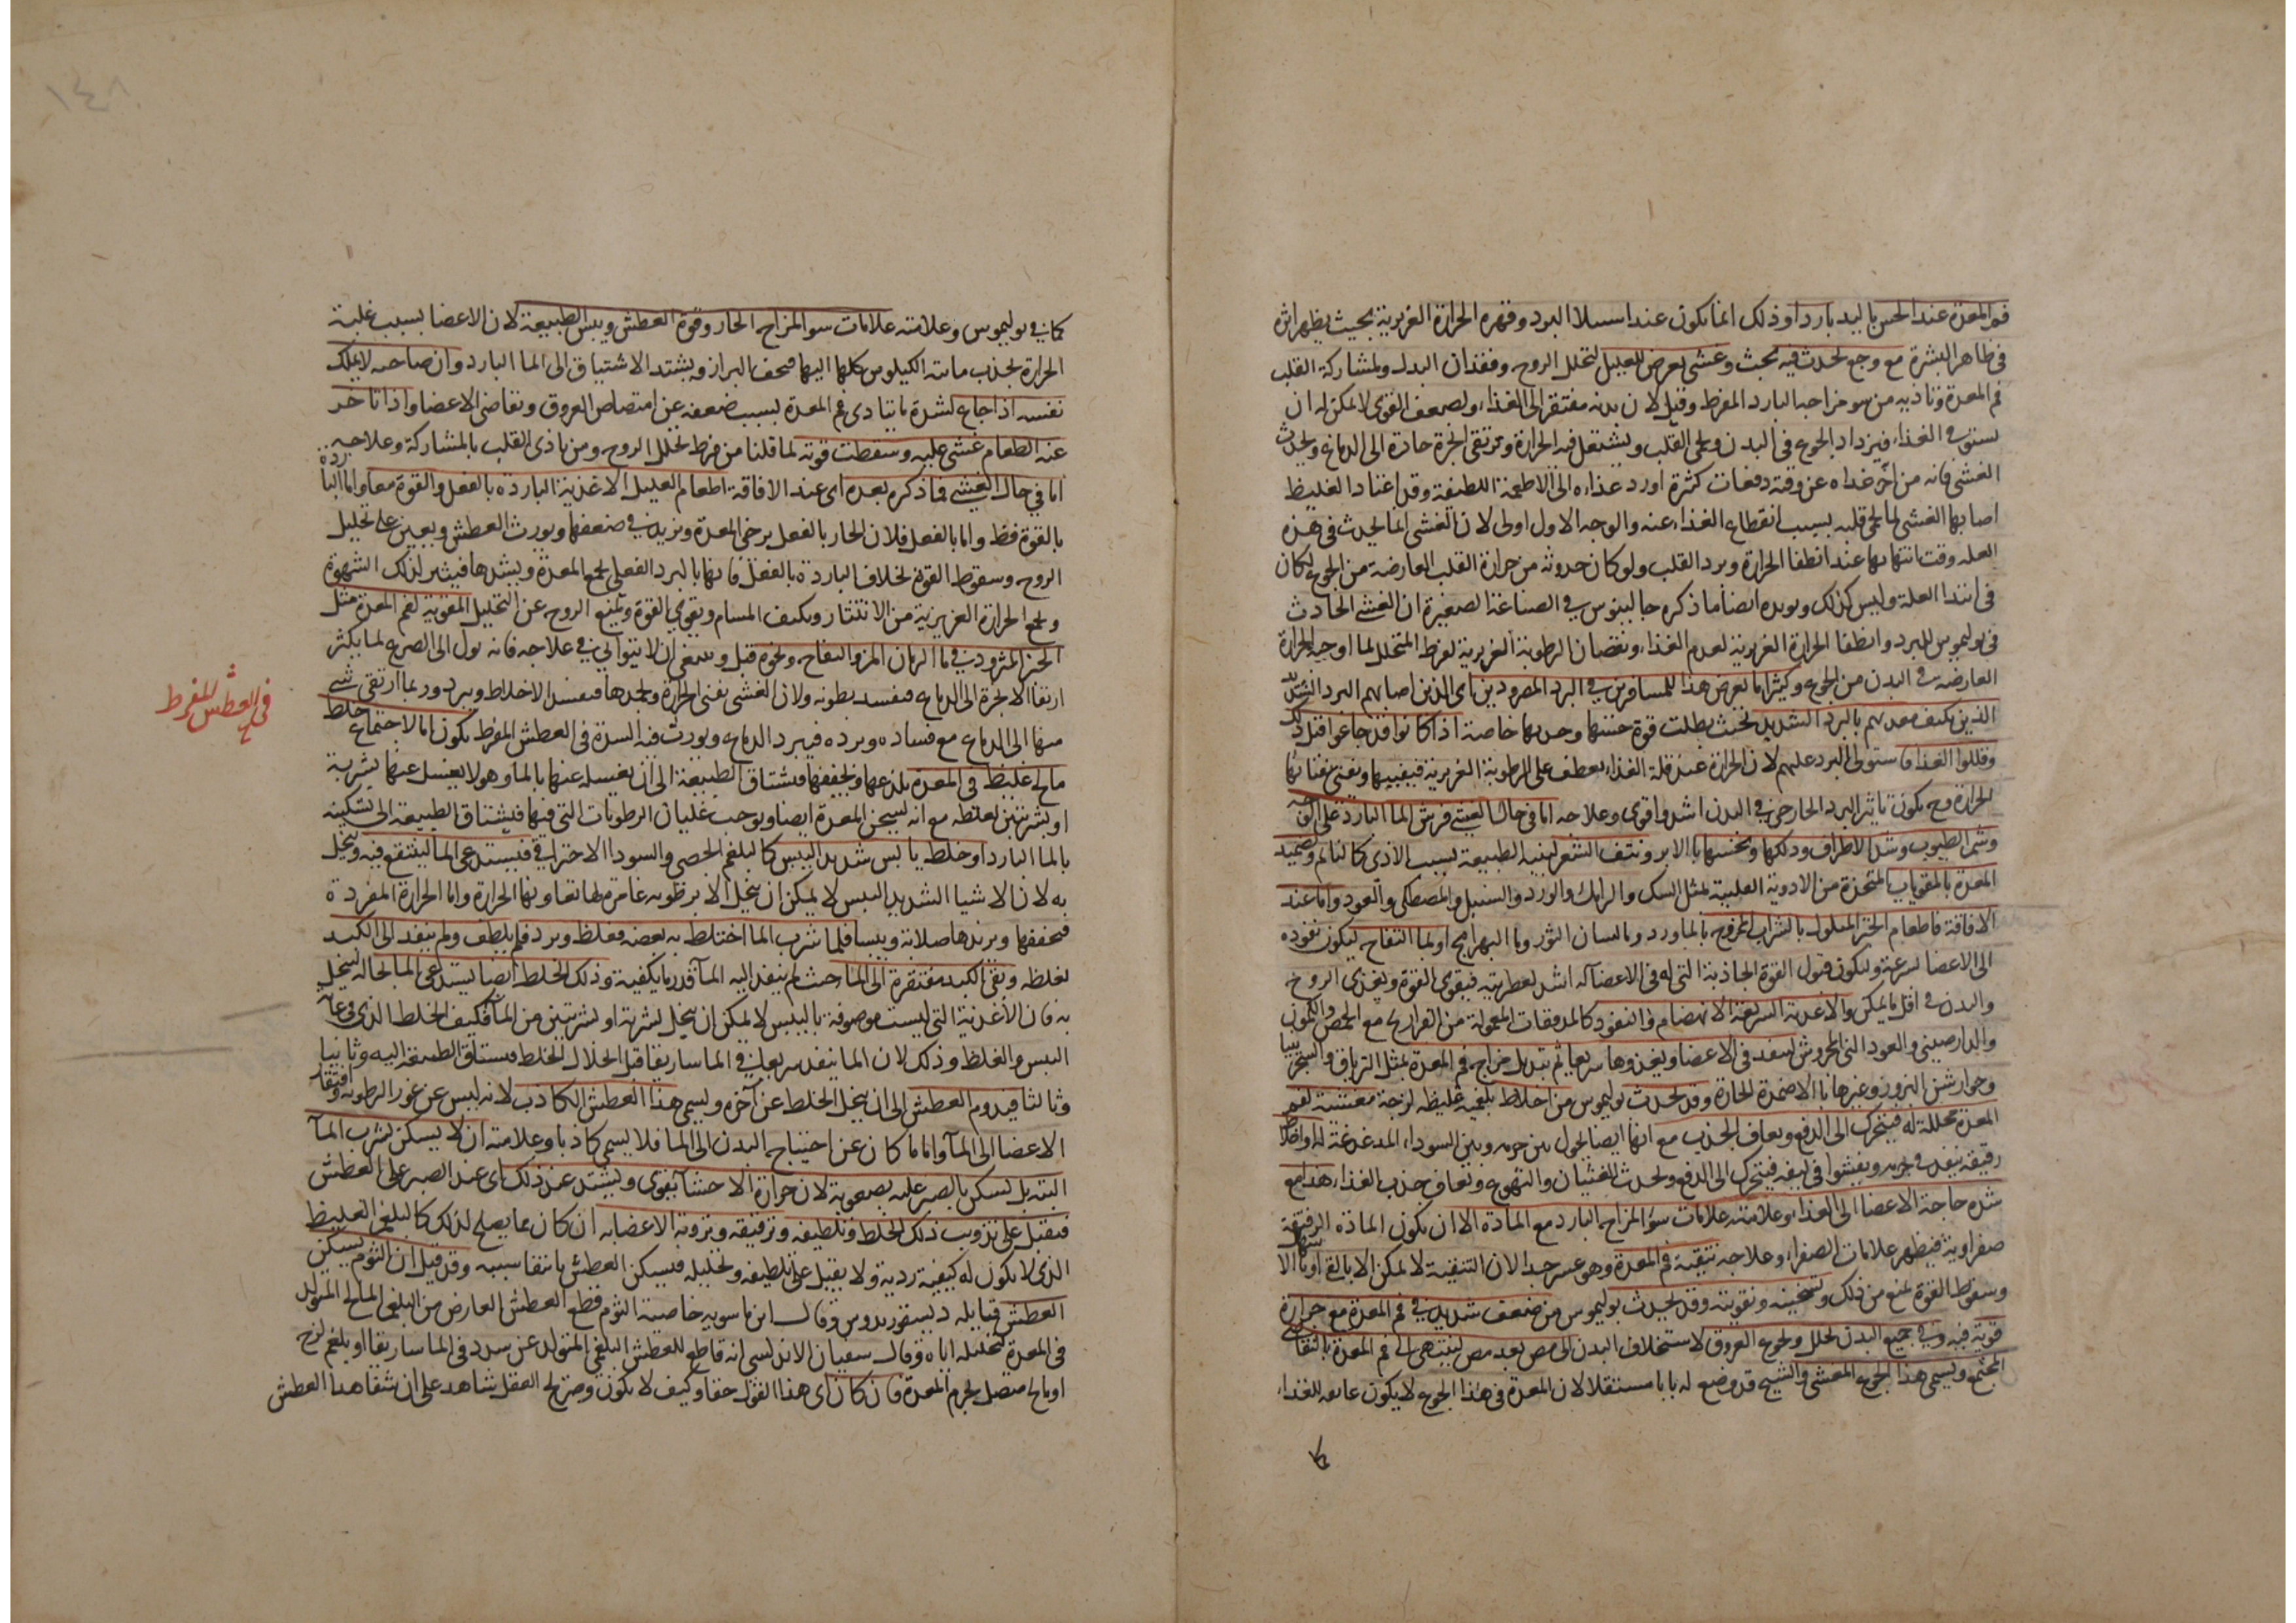 فم المعدة عند الحس باليد باردا وذلك انما يكون عند استيلا البرد وقهره الحرارة الغريزية بحيث يظهر اثره
فى ظاهر البشرة مع وجع يحدث فيه بحيث وغشى يعرض للعليل لتحلل الروح وفقدان البدل ولمشاركة القلب
فم المعدة وتاذيه من سو مزاجه البارد المفرط وقيل لان بدنه مفتقر الى الغذاء ولضعف القوى لا يمكن له ان
يستوفى الغذاء فيزداد الجوع فى البدن ويحمى القلب ويشتعل فيه الحرارة وترتقى ابخرة حادة الى الدماغ ويحدث
الغشى فانه من اخر غداه عن وقته دفعات كثرة اورد غذاه الى الاطعمة اللطيفة وقد اعتاد الغليظ
اصابها الغشى لما يحمى قلبه بسبب انقطاع الغذاء عنه والوجه الاول اولى لان الغشى انما يحدث فى هذه
العله وقت انتهائها عند انطفا الحرارة وبرد القلب ولو كان حدوثه من حرارة القلب العارضة من الجوع لكان
فى ابتدا العلة وليس كذلك ويويده ايضا ما ذكره جالينوس فى الصناعة الصغيرة ان الغشى الحادث
فى بوليموس للبرد وانطفا الحرارة الغريزية لعدم الغذاء ونقصان الرطوبة الغريزية لفرط المتحلل لما اوجبه الحرارة
العارضه فى البدن من الجوع وكثيرا ما يعرض هذا للمسافرين فى البرد المصرودين اى الذين اصابهم البرد الشديد
الذين يكثف معدتهم بالبرد الشديد بحيث بطلت قوة حسها وجذبها خاصة اذا كانوا قد جاعوا قبل ذلك
وقللوا الغذا فاستولى البرد عليهم لان الحرارة عند قلة الغذاء يعطف على الرطوبة الغريزية فيفنيها ويفنى بفنائها
الحرارة وح يكون تاثير البرد الخارجى فى البدن اشد واقوى وعلاجه اما فى حال الغشى فرش الما البارد على الوجه
وشم الطيوب وشد الاطراف ودلكها ونخسها بالابر ونتف الشعر لينبه الطبيعة بسبب الاذى كالنائم وتضميد
المعدة بالمقويات المتخذة من الادوية القلبية بمثل السك والرامك والورد والسنبل والمصطكى والعود واما عند
الافاقة فاطعام الخبز المبلول بالشراب الممزوج بالماورد وما لسان الثور وما البهرامج او بما التفاح ليكون نفوذه
الى الاعضا بسرعة وليكون قبول القوة الجاذبة التى له فى الاعضا له اشد لعطريته فيقوى القوة ويغذى الروح
والبدن فى اقل ما يمكن والاغذية السريعة الانهضام والنفوذ كالمدققات المعمولة من الفراريج مع الحمص والكمون
والدارصينى والعود النى المجروش لينفذ فى الاعضا ويغذوها سريعا ثم تبديل مزاج فم المعدة بمثل الترياق والسجزينيا
وجوارشن البزور وغيرها بالاضمدة الحارة وقد يحدث بوليموس من اخلاط بلغمية غليظه لزجة مغشية لفم
المعدة محللة له فيتحرك الى الدفع ويعاف الجذب مع انها ايضا يحول بين جرمه وبين السوداء المدغدغة له او اخلاط
رقيقه ينفذ فى جرمه ويفشوا فى ليفه فيتحرك الى الدفع ويحدث الغثيان والتهوع ويعاف جذب الغذاء هذا مع
شدة حاجة الاعضا الى الغذاء وعلامته علامات سؤ المزاج البارد مع المادة الا ان يكون المادة الرقيقة
صفراوية فيظهر علامات الصفراء وعلاجه تنقية فم المعدة وهو عسر جدا لان التنقية لا يمكن الا بالقى او بالاسهال
وسقوط القوة يمنع من ذلك وتسخينه وتقويته وقد يحدث بوليموس من ضعف شديد فى فم المعدة مع حرارة
قوية فيه وفى جميع البدن يحلل ويجوع العروق لاستخلاف البدن الى مص بعد مص لينتهى الى فم المعدة بالتقاضى
المجتمع ويسمى هذا الجوع المغشى والشيخ قد وضع له بابا مستقلا لان المعدة فى هذا الجوع لا يكون عائفه للغذاء
كما
كما فى بوليموس وعلامته علامات سو المزاج الحار وقوة العطش ويبس الطبيعة لان الاعضا بسبب غلبة
الحرارة يجذب مائية الكيلوس كلها اليها فيجف البراز ويشتد الاشتياق الى الما البارد وان صاحبه لا يملك
نفسه اذا جاع لشدة ما يتاذى فم المعدة بسبب ضعفه عن امتصاص العروق وتقاضى الاعضا واذا تاخر
عنه الطعام غشى عليه وسقطت قوته لما قلنا من فرط تحلل الروح ومن تاذى القلب بالمشاركة وعلاجه
اما فى حال الغشى فما ذكر وبعده اى عند الافاقة اطعام العليل الاغذية الباردة بالفعل والقوة معا واما الباردة
بالقوة فقط واما بالفعل فلان الحار بالفعل يرخى المعدة ويزيد فى ضعفها ويورث العطش ويعين على تحليل
الروح وسقوط القوة بخلاف الباردة بالفعل فانها بالبرد الفعلى يجمع المعدة ويشدها فيثير لذلك الشهوة
ويجمع الحرارة الغريزية من الانتشار ويكثف المسام ويقوى القوة ويمنع الروح عن التحليل المقوية لفم المعدة مثل
الخبز المثرود فى ما الرمان المز والتفاح ونحوه قيل وينبغى ان لا يتوانى فى علاجه فانه يول الى الصرع لما يكثر
ارتقا الابخرة الى الدماغ فيفسد بطونه ولان الغشى يفنى الحرارة ويخمدها فيفسد الاخلاط ويبرد وربما ارتقى شى
منها الى الدماغ مع فساده وبرده فيبرد الدماغ ويورث فيه السدة فى العطش المفرط يكون اما لاجتماع خلط
مالح غليظ فى المعدة يلذعها ويجففها فيشتاق الطبيعة الى ان يغسله عنها بالما وهو لا يغسل عنها بشربة
او بشربتين لغلظه مع انه يسخن المعدة ايضا ويوجب غليان الرطوبات التى فيها فيشتاق الطبيعة الى تسكينه
بالما البارد او خلط يابس شديد اليبس كالبلغم الجصى والسودا الاحتراقى فيستدعى الما لينتقع فيه وينحل
به لان الاشيا الشديد اليبس لا يمكن ان ينحل الا برطوبه غامرة لها تعاونها الحرارة واما الحرارة المفردة
فيجففها ويزيدها صلابة ويبسا فلما شرب الما اختلط به بعضه فغلظ وبرد فلم يلطف ولم ينفذ الى الكبد
لغلظه وبقى الكبد مفتقرة الى الما حيث لم ينفذ اليه الماء قدر ما يكفيه وذلك الخلط ايضا يستدعى الما بحاله لينحل
به فان الاغذية التى ليست موصوفة باليبس لا يمكن ان ينحل بشربة او بشربتين من الماء فكيف الخلط الذى فى غاية
اليبس والغلظ وذلك لان الما ينفذ سريعا فى الماساريقا قبل انحلال الخلط فيشتاق الطبيعة اليه وثانيا
وثالثا فيدوم العطش الى ان ينحل الخلط عن آخره ويسمى هذا العطش الكاذب لانه ليس عن عوز الرطوبة وافتقار
الاعضا الى الماء واما ما كان عن احتياج البدن الى الما فلا يسمى كاذبا وعلامته ان لا يسكن بشرب الماء
البته بل يسكن بالصبر عليه بصعوبة لان حرارة الاحشا يقوى ويشتد عند ذلك اى عند الصبر على العطش
فيقبل على تذويب ذلك الخلط وتلطيفه وترقيقه وتروية الاعضا به ان كان مما يصلح لذلك كالبلغم الغليظ
الذى لا يكون له كيفية ردية ولا يقبل على تلطيفه وتحليله فيسكن العطش بانتفا سببه وقد قيل ان الثوم يسكن
العطش قيابله ديسقوريدوس وقال ابن ماسويه خاصية الثوم قطع العطش العارض من البلغم المالح المتولد
فى المعدة لتحليله اياه وقال سفيان الاندلسى انه قاطع للعطش البلغمى المتولد عن سدد فى الماساريقا او بلغم لزج
او مالح متصل بجرم المعدة فان كان اى هذا القول حقا وكيف لا يكون وصريح العقل شاهد على ان شفا هذا العطش
فى العطش المفرط
١٤٨